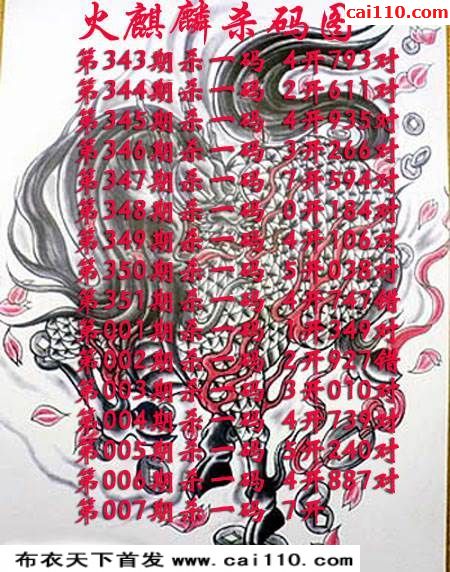 cai110.com
火麒麟杀码图
第343期杀一码 4开793对
第344期杀一码 2开611对
第345期杀一码 4开935对
第346期杀一码 3开266对
第347期杀一码 7开594对
第348期杀一码 0开184对
第349期杀一码 4开106对
第350期杀一码 5开038对
第351期杀一码 4开747错
第001期杀一码 1开349对
第002期杀一码 2开927错
第003期杀一码 3开010对
第004期杀一码 4开739对
第005期杀一码 5开240对
第006期杀一码 4开887对
第007期杀一码 7开
布衣天下首发 www.cai110.com